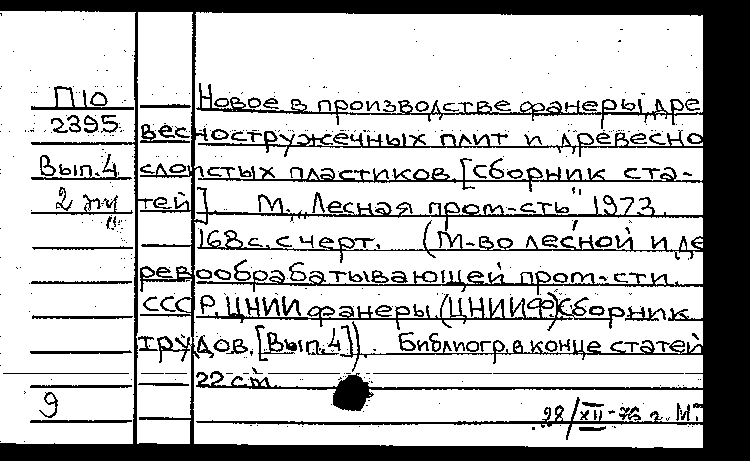 П10 Новое в производстве фанеры, дре
2395 весностружечных плит и древесно
Вып.4 слоистых пластиков. [Сборник ста-
2 эк тей]. М. „Лесная пром-сть" 1973.
168 с. с черт. (М-во лесной и де
ревообрабатывающей пром-сти
СССР. ЦНИИ фанеры. (ЦНИИФ) Сборник
трудов. [Вып.4]). Библиогр. в конце статей
22 см.
9
28/XII-73 г. М.